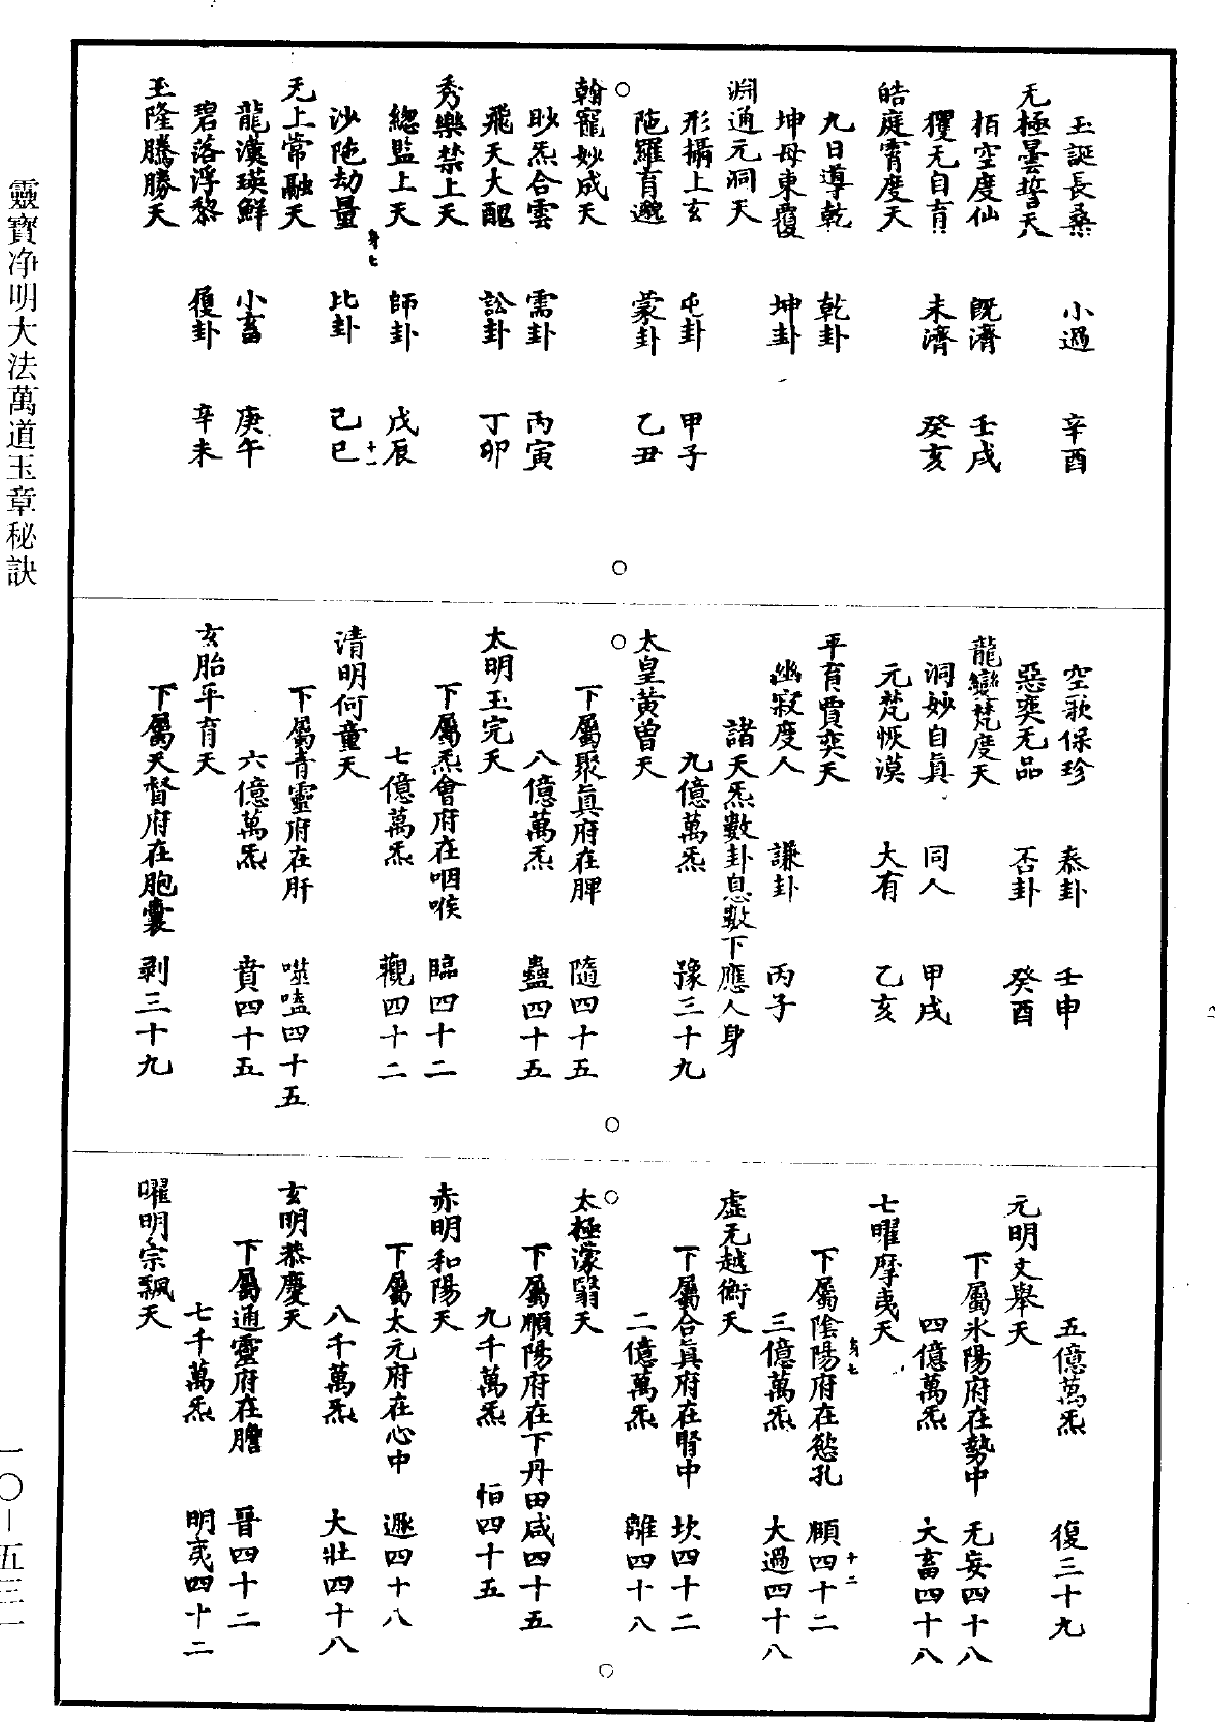 玉誕長桑　小過　辛酉
无極曇誓天
栢空度仙　既濟　壬戌
玃无自育　未濟　癸亥
皓庭霄度天
九日導乾　乾卦
坤母東覆　坤卦
淵通元洞天
形攝上玄　屯卦　甲子
陁羅育邈　蒙卦　乙丑
翰寵妙成天
眇炁合雲　需卦　丙寅
飛天大醜　訟卦　丁卯
秀樂禁上天
總監上天　師卦　戊辰
身七　十一
沙陁劫量　比卦　己巳
无上常融天
龍漢瑛鮮　小畜　庚午
碧落浮黎　履卦　辛未
玉隆騰勝天
空歌保珍　泰卦　壬申
惡奕无品　否卦　癸酉
龍變梵度天
洞妙自真　同人　甲戌
元梵恢漠　大有　乙亥
平育賈奕天
幽寂度人　謙卦　丙子
諸天炁數卦息數下應人身
九億萬炁　豫三十九
太皇黄曾天
下屬聚真府在脾　隨四十五
八億萬炁　蠱四十五
太明玉完天
下屬炁會府在咽喉　臨四十二
七億萬炁　觀四十二
清明何童天
下屬青靈府在肝　噬嗑四十五
六億萬炁　賁四十五
玄胎平育天
下屬天督府在胞囊　剥三十九
五億萬炁　復三十九
元明文舉天
下屬氷陽府在勢中　无妄四十八
四億萬炁　大畜四十八
七曜摩夷天
身七　十二
下屬陰陽府在慾孔　頤四十二
三億萬炁　大過四十八
虚无越衡天
下屬合真府在腎中　坎四十二
二億萬炁　離四十八
太極濛翳天
下屬順陽府在下丹田咸四十五
九千萬炁　恒四十五
赤明和陽天
下屬太元府在心中　遯四十八
八千萬炁　大壯四十八
玄明恭慶天
下屬通靈府在膽　晉四十二
七千萬炁　明夷四十二
曜明宗飄天
靈寶净明大法萬道玉章秘訣
一〇-五三一